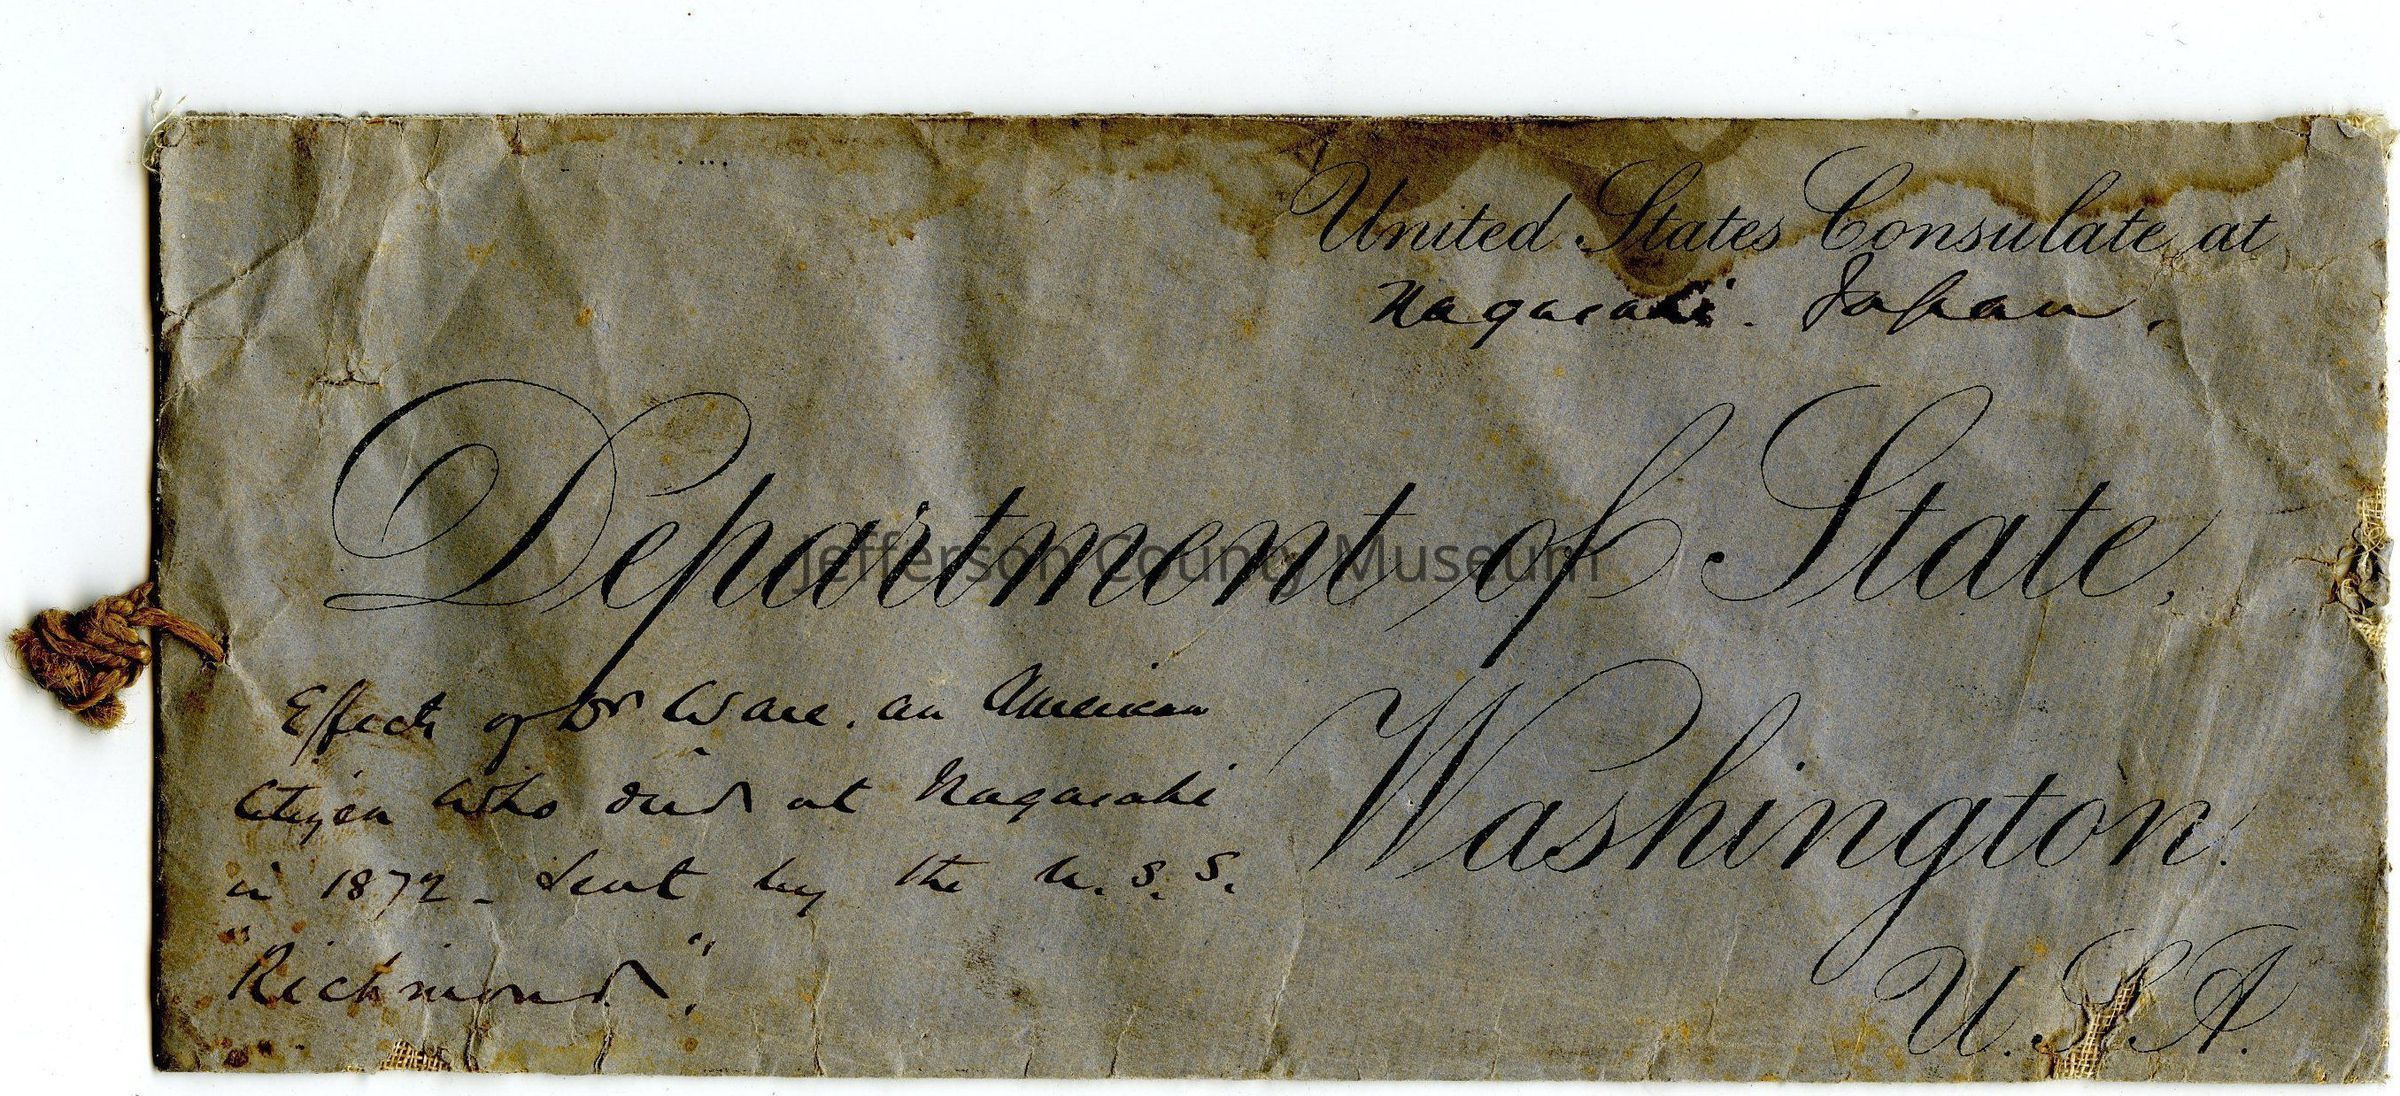 United States Consulate at
Nagasaki. Japan.
Department of State,
Jefferson County Museum
Washington.
U.S.A.
Effects of Dr Ware. an American
Citizen who died at Nagasaki
in 1872 - Sent by the U.S.S.
"Richmond".